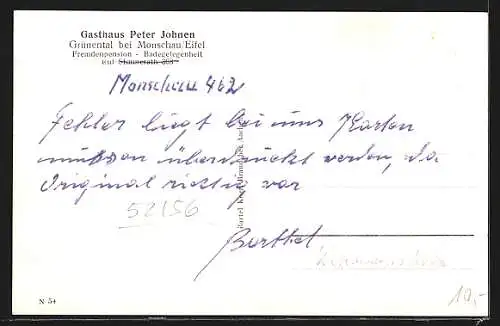 Gasthaus Peter Johnen
Grünental bei Monschau/Eifel
Fremdenpension - Badegelegenheit
Ruf
Monschau 462
Fehler liegt bei uns Karten
müssen überdruckt werden, da
Original richtig war
52156
Barthel
N 54
10,-